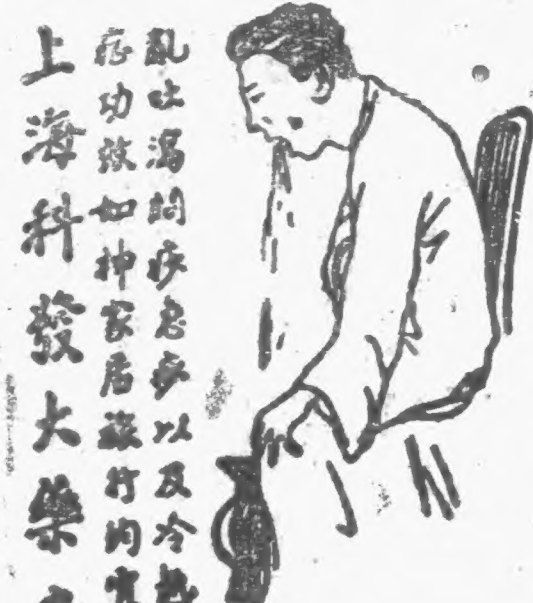 亂吐瀉痢疾急痧以及冷熱
症功效如神家居旅行均宜
上海科發大藥